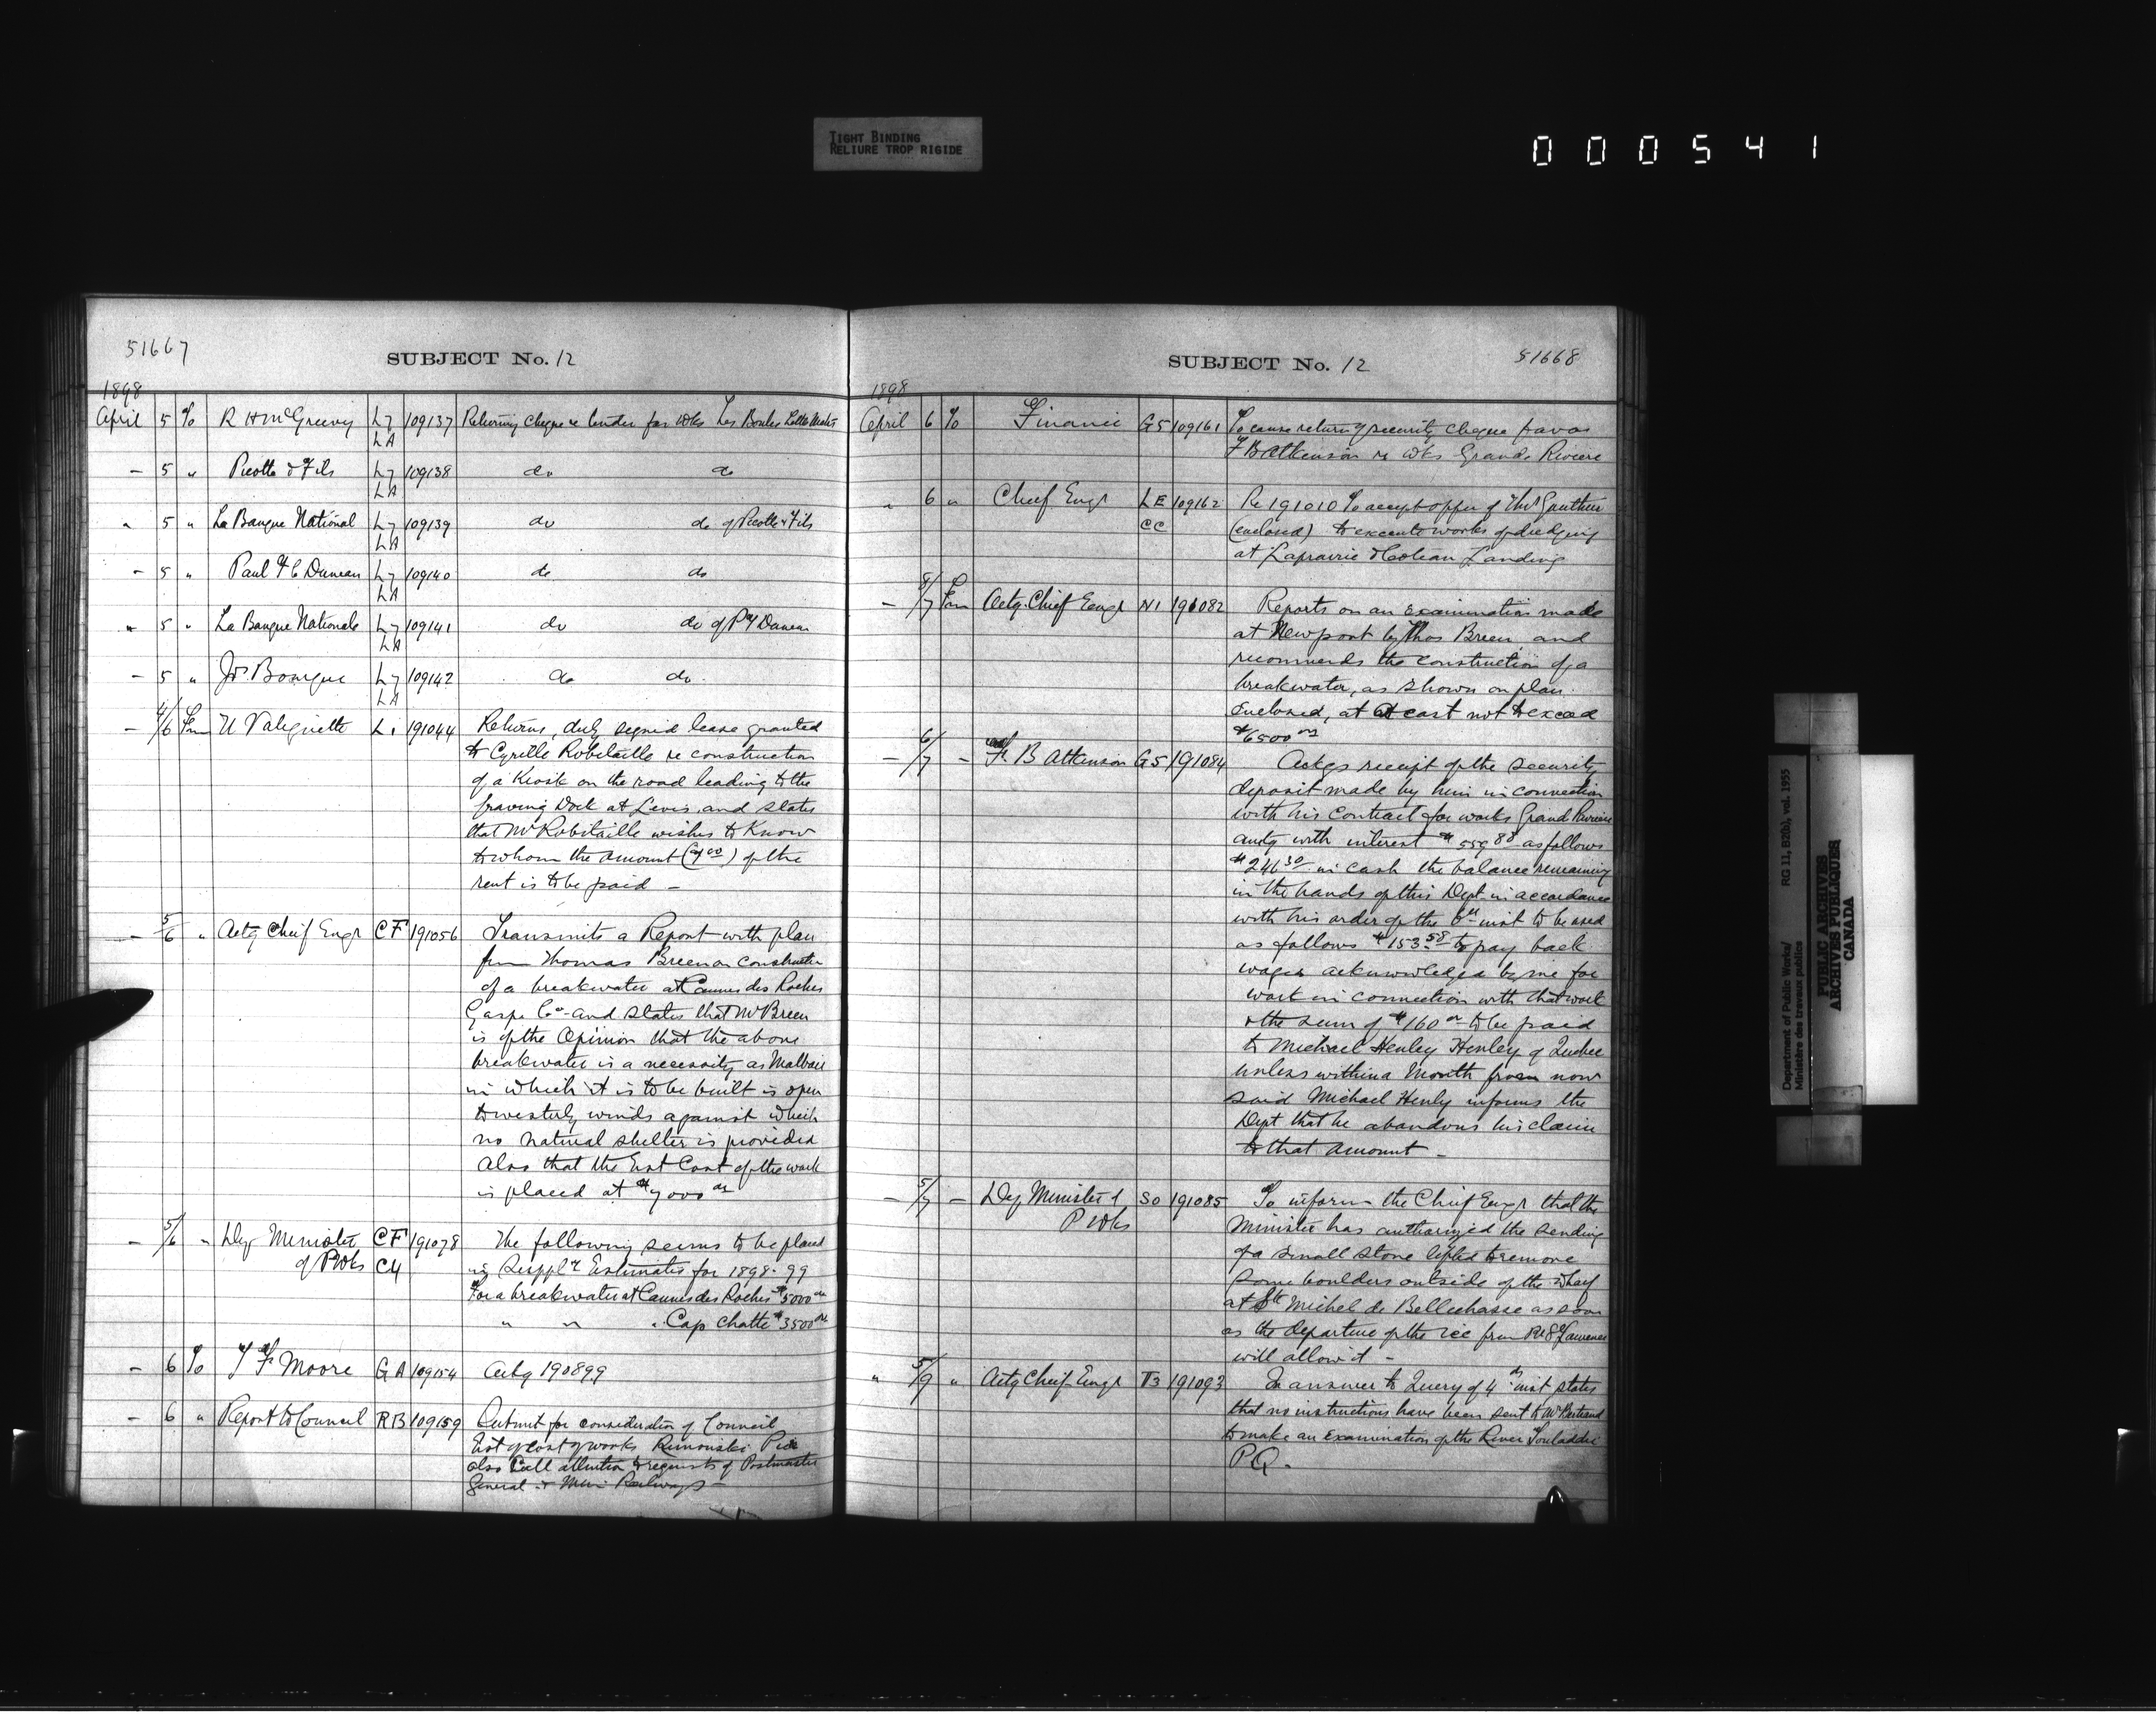 TIGHT BINDING
RELIURE TROP RIGIDE
000541
51667
SUBJECT No. 12
1898
April 5 To R H McGreevy L7 LA 109137 Returning cheque re tender for Wks Les Boules
- 5 " Picotte & Fils L7 LA 109138 do do
" 5 " La Banque National L7 LA 109139 do do of Picotte & Fils
- 5 " Paul H C Duncan L7 LA 109140 do do
" 5 " La Banque Nationale L7 LA 109141 do do of P Duncan
- 5 " Jos. Bourque L7 LA 109142 do do
- 4/6 Frm U Valiquette Li 191044 Returns, duly signed lease granted
to Cyrille Robitaille re construction
of a Kiosk on the road leading to the
graving Dock at Levis, and states
that Mr Robitaille wishes to Know
to whom the amount of the
rent is to be paid -
- 5/6 " Actg Chief Engr CF 191056 Transmits a Report with plan
from Thomas Breen on construction
of a breakwater at Cannes des Roches
Gaspe Co - and states that Mr Breen
is of the Opinion that the above
breakwater is a necessity as Malbaie
in which it is to be built is open
to westerly winds against which
no natural shelter is provided
Also that the Est Cost of the work
is placed at $7000 00
- 5/6 " Dep Minister CF 191078 The following seems to be placed
of PWks C4 in Suppl'y Estimates for 1898-99
For a breakwater at Cannes des Roches $5000 00
" " " Cap Chatte $3500 00
- 6 To J F Moore GA 109154 Actg 190899
- 6 " Report to Council RB 109159 Submit for consideration of Council
Est of cost of works Rimouski Pier
also Call attention to requests of Postmaster
General & Railways -
SUBJECT No. 12
51668
1898
April 6 To Finance G5 109161 To cause return of security cheque favor
F B Atkinson re Wks Grande Riviere
" 6 " Chief Engr LE CC 109162 Re 191010 To accept offer of Thos Gauthier
(enclosed) to execute works of dredging
at Laprairie & Landing
- 8/7 Frm Actg. Chief Engr N1 191082 Reports on an examination made
at Newport by Thos Breen and
recommends the construction of a
breakwater, as shown on plan
enclosed, at a cost not to exceed
$6500 00
- 6/7 - F. B Atkinson G5 191084 Ackgs receipt of the security
deposit made by him in connection
with his contract for works Grand Riviere
amtg with interest $559 88 as follows
$246 30 in cash the balance remaining
in the hands of this Dept in accordance
with his order of the 6th inst to be used
as follows $153.58 to pay back
wages acknowledged by me for
work in connection with that work
& the sum of $160 00 to be paid
to Michael Henley Henley of Quebec
unless within a Month from now
said Michael Henly informs the
Dept that he abandons his claim
to that amount -
- 5/7 - Dep Minister of SO 191085 To inform the Chief Engr that the
P Wks Minister has authorized the sending
of a small stone lifter to remove
some boulders outside of the wharf
at Ste Michel de Bellechasse as soon
as the departure of the ice from St Lawrence
will allow it -
" 5/9 " Actg Chief Engr T3 191093 In answer to Query of 4th inst states
that no instructions have been sent to Mr Bertrand
to make an examination of the River
P.Q.
Department of Public Works/ RG 11, B2(b), vol. 1955
Ministère des travaux publics
PUBLIC ARCHIVES
ARCHIVES PUBLIQUES
CANADA